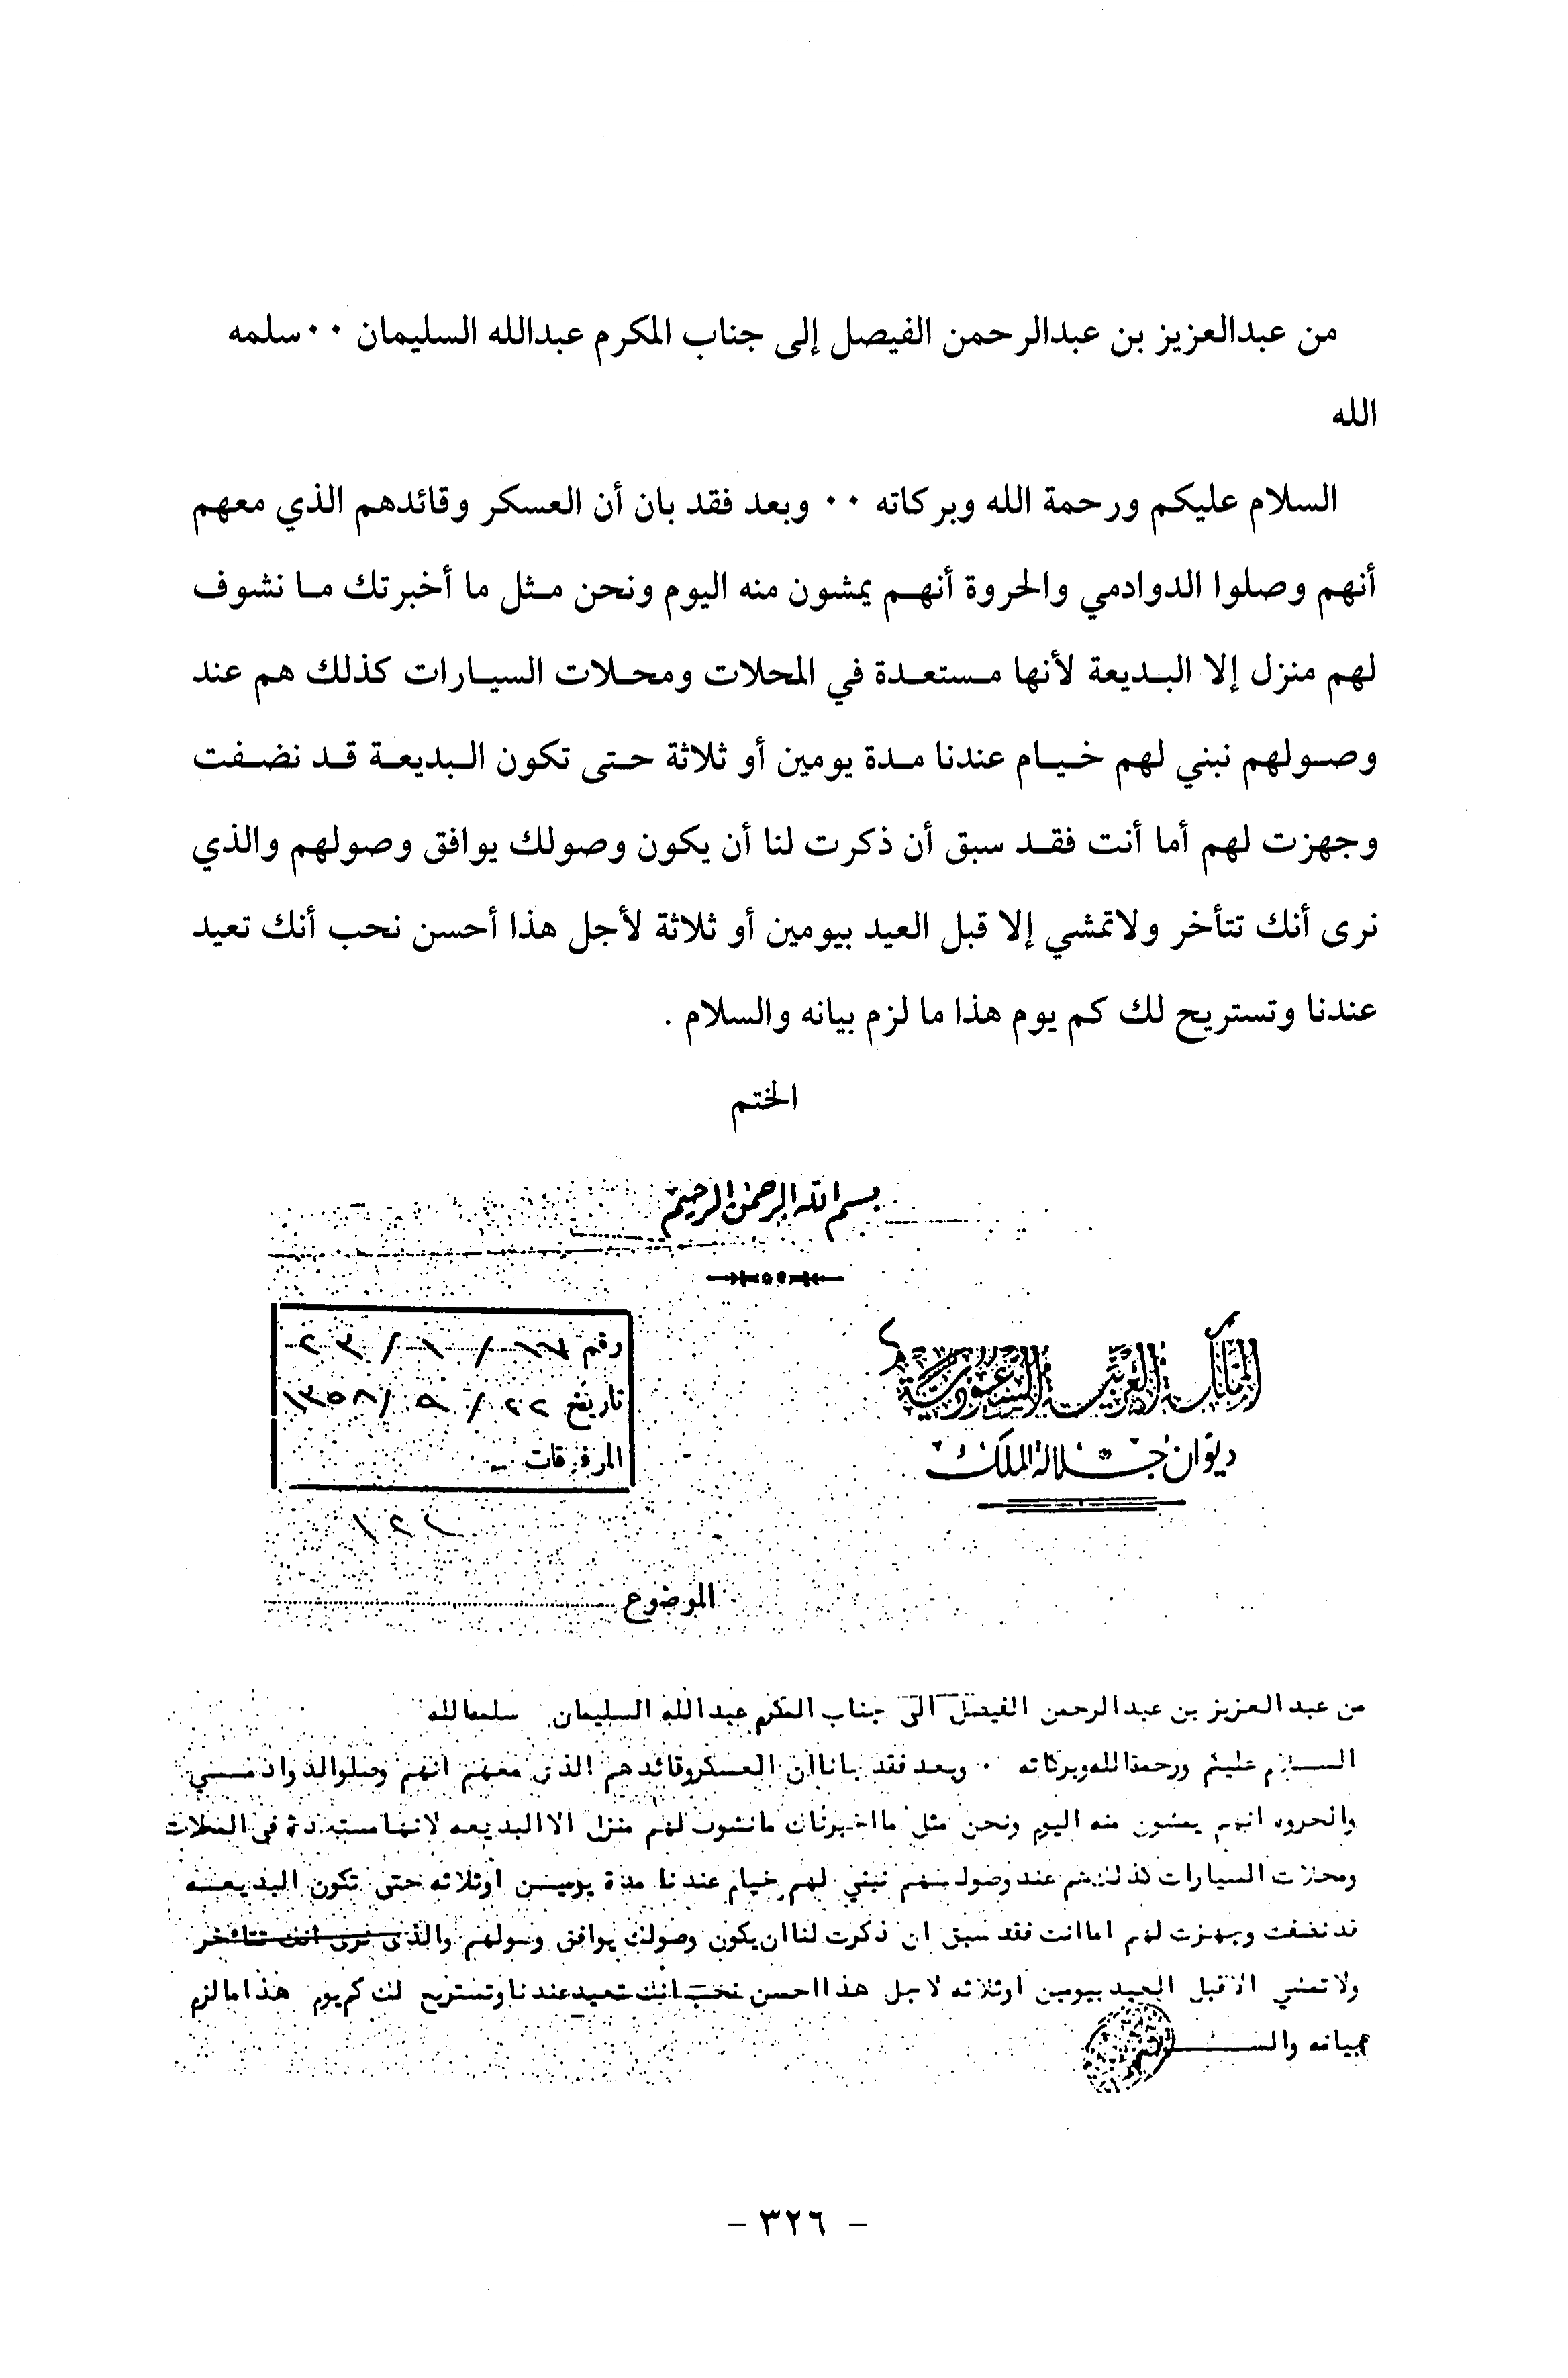 من عبدالعزيز بن عبدالرحمن الفيصل إلى جناب المكرم عبدالله السليمان ٠٠ سلمه
الله
السلام عليكم ورحمة الله وبركاته ٠٠ وبعد فقد بان أن العسكر وقائدهم الذي معهم
أنهم وصلوا الدوادمي والحروة أنهم يمشون منه اليوم ونحن مثل ما أخبرتك ما نشوف
لهم منزل إلا البديعة لأنها مستعدة في المحلات ومحلات السيارات كذلك هم عند
وصولهم نبني لهم خيام عندنا مدة يومين أو ثلاثة حتى تكون البديعة قد نضفت
وجهزت لهم أما أنت فقد سبق أن ذكرت لنا أن يكون وصولك يوافق وصولهم والذي
نرى أنك تتأخر ولاتمشي إلا قبل العيد بيومين أو ثلاثة لأجل هذا أحسن نحب أنك تعيد
عندنا وتستريح لك كم يوم هذا ما لزم بيانه والسلام .
الختم
بسم الله الرحمن الرحيم
المملكة العربية السعودية
ديوان جلالة الملك
رقم
تاريخ ٢٢ / ٩ / ١٣٥٨
المرفوقات -
الموضوع
من عبد العزيز بن عبد الرحمن الفيصل الى جناب المكرم عبد الله السليمان سلمه الله
السلام عليكم ورحمة الله وبركاته ٠ وبعد فقد بانا ان العسكر وقائدهم الذى معهم انهم وصلوا الدوادمــي
والحروه انهم يمشون منه اليوم ونحن مثل ما اخبرناك ما نشوف لهم منزل الا البديعه لانها مستعدة فى المحلات
ومحلات السيارات كذلك هم عند وصولهم نبني لهم خيام عندنا مدة يومين او ثلاثه حتى تكون البديعــه
قد نضفت وجهزت لهم اما انت فقد سبق ان ذكرت لنا ان يكون وصولك يوافق وصولهم والذى نرى انك تتأخر
ولا تمشي الا قبل العيد بيومين او ثلاثه لاجل هذا احسن نحب انك تعيد عندنا وتستريح لك كم يوم هذا ما لزم
بيانه والســلام
- ٣٢٦ -